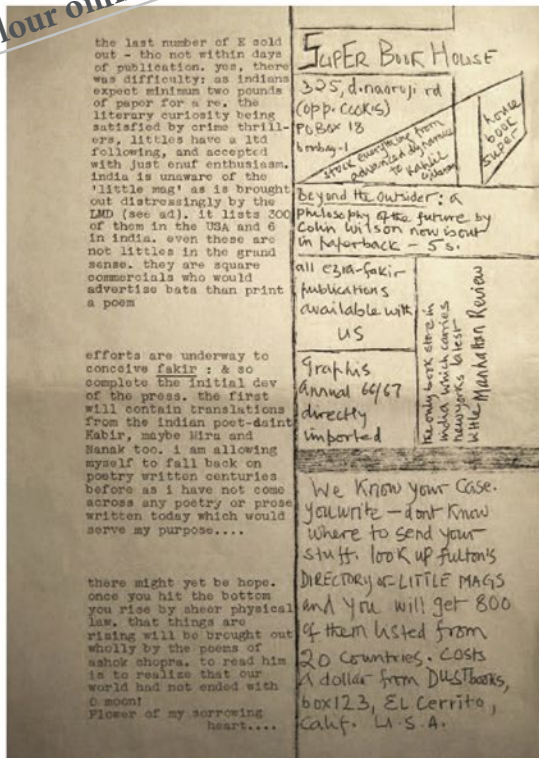 lour onl
the last number of E sold
out - tho not within days
of publication. yes, there
was difficulty: as indians
expect minimum two pounds
of paper for a re. the
literary curiosity being
satisfied by crime thrill-
ers, littles have a ltd
following, and accepted
with just enuf enthusiasm.
india is unaware of the
'little mag' as is brought
out distressingly by the
LMD (see ad). it lists 300
of them in the USA and 6
in india. even these are
not littles in the grand
sense. they are square
commercials who would
advertise bata than print
a poem
efforts are underway to
conceive fakir : & so
complete the initial dev
of the press. the first
will contain translations
from the indian poet-daint
Kabir, maybe Mira and
Nanak too. i am allowing
myself to fall back on
poetry written centuries
before as i have not come
across any poetry or prose
written today which would
serve my purpose....
there might yet be hope.
once you hit the bottom
you rise by sheer physical
law. that things are
rising will be brought out
wholly by the poems of
ashok chopra. to read him
is to realize that our
world had not ended with
O moon!
Flower of my sorrowing
heart....
SUPER BOOK HOUSE
325, d.naoroji rd
(opp. Cooks)
PO Box 18
bombay-1
stock everything from
advanced dynamics
to Kahlil
house
book
super
Beyond the Outsider: a
philosophy of the future by
Colin Wilson now is out
in paperback - 5s.
all ezra-fakir
publications
available with
US
the only book store in
india which carries
newyorks latest
little Manhattan Review
Graphis
Annual 66/67
directly
imported
We Know your Case.
you write - dont know
where to send your
stuff. look up fulton's
DIRECTORY OF LITTLE MAGS
and you will get 800
of them listed from
20 countries. costs
A dollar from DUSTbooks,
box 123, EL Cerrito,
Calif. U.S.A.